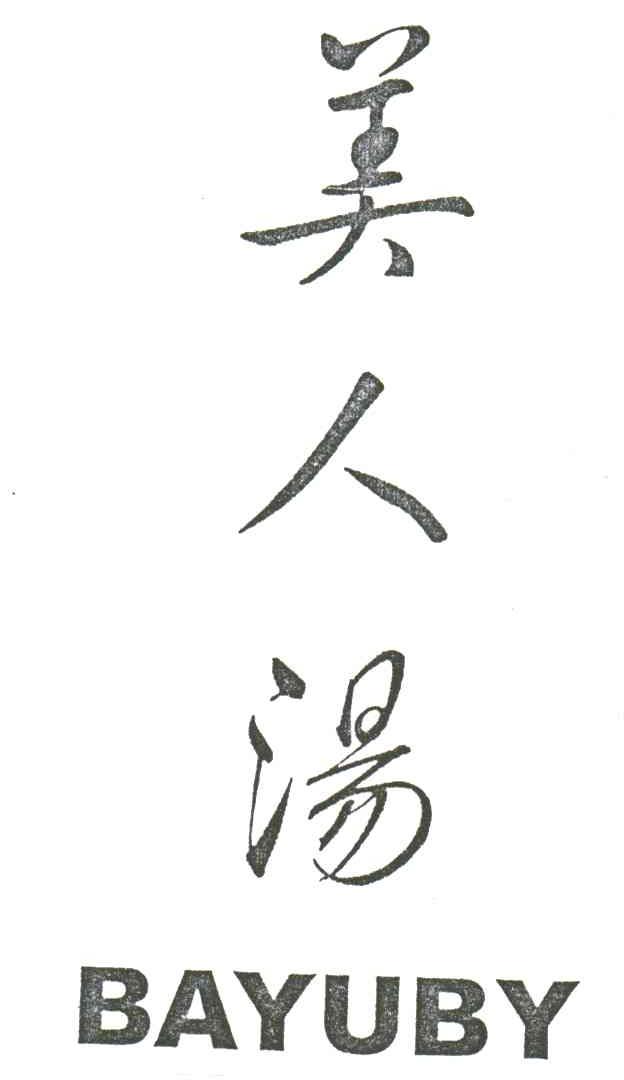 美人湯
BAYUBY